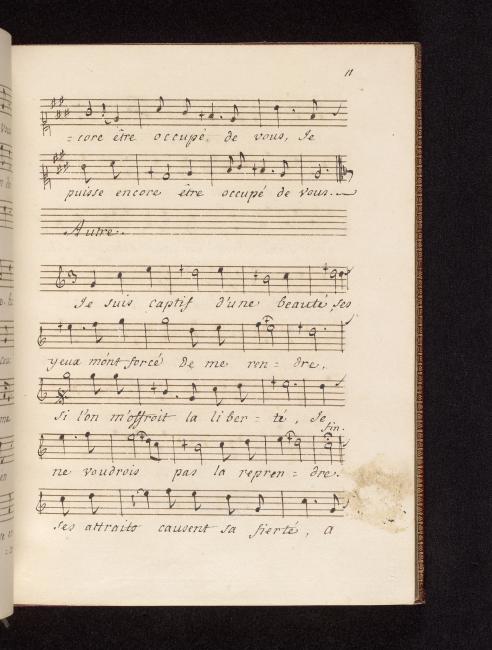 11
=core être occupé de vous, Je
puisse encore être occupé de vous.
Autre.
Je suis captif d'une beauté, ses
yeux m'ont forcé de me ren= dre,
Si l'on m'offroit la liber= té, Je
fin.
ne voudrois pas la repren= dre.
Ses attraits causent sa fierté, a